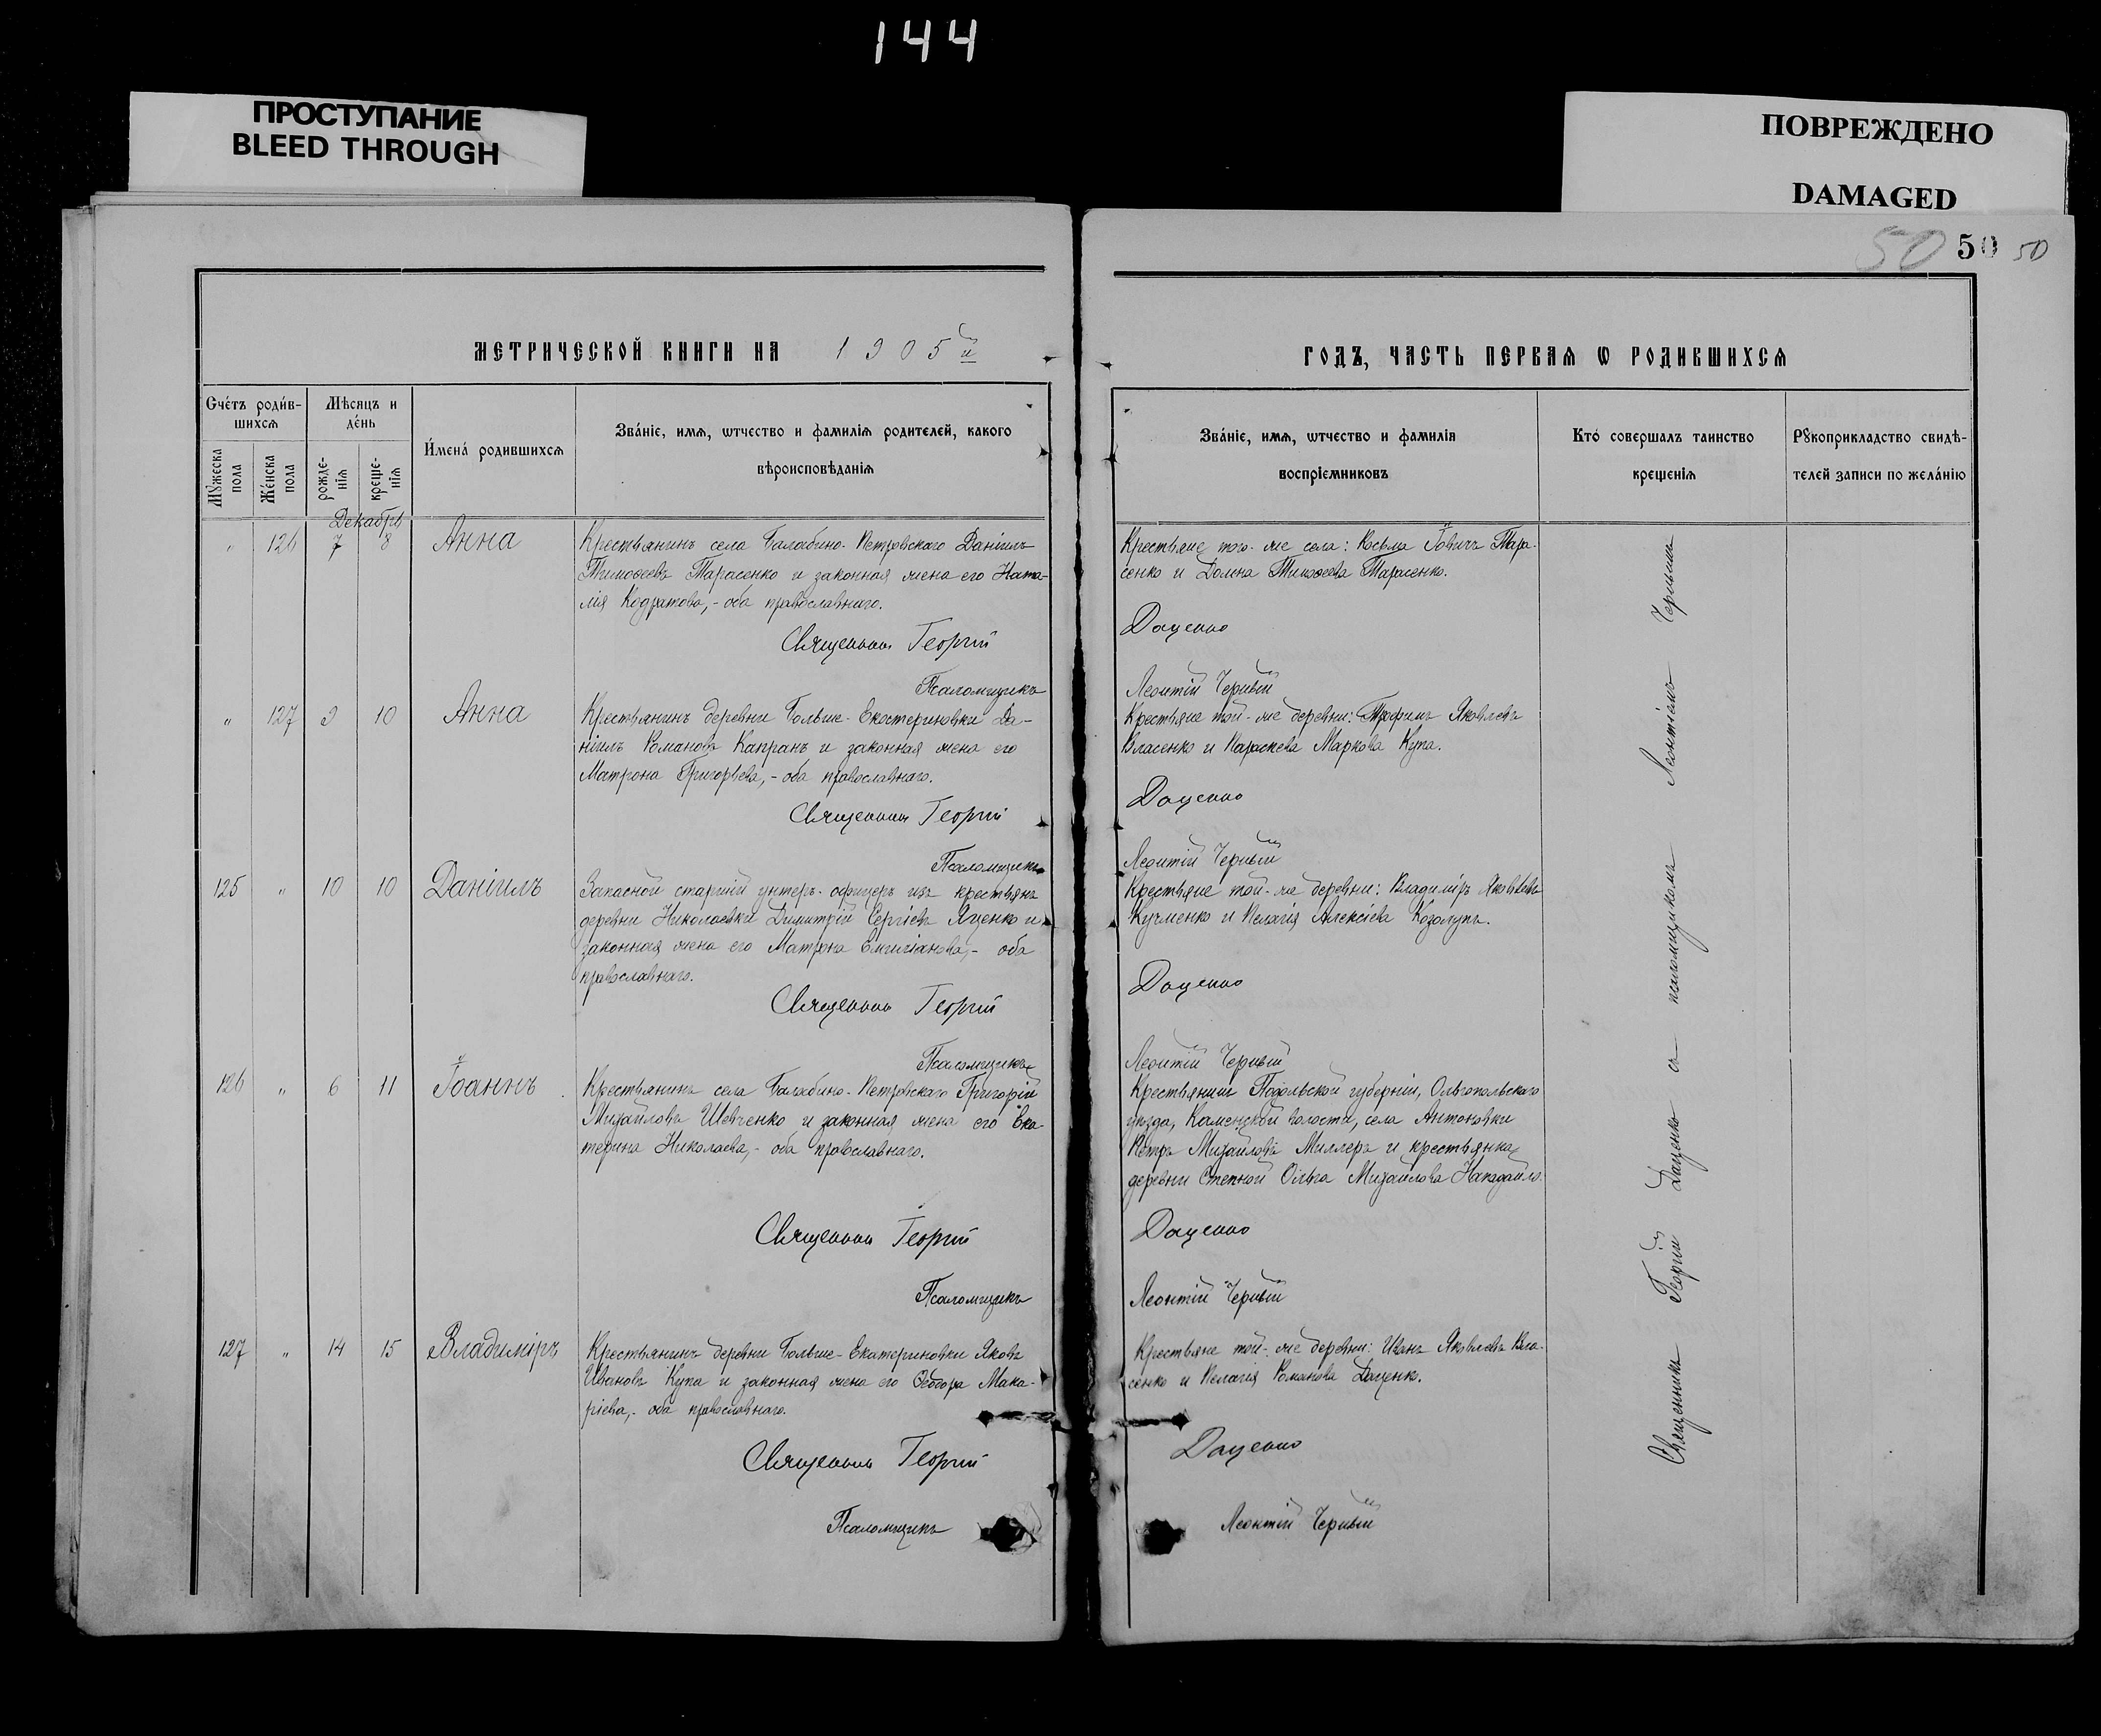 144
ПРОСТУПАНИЕ
BLEED THROUGH
ПОВРЕЖДЕНО
DAMAGED
50 50 50
МЕТРИЧЕСКОЙ КНИГИ НА 1905й
ГОДЪ, ЧАСТЬ ПЕРВАѦ Ѡ РОДИВШИХСѦ
Сче́тъ роди́в-
шихсѧ
Мꙋжеска пола
Же́нска пола
Мѣсяцъ и
де́нь
рожде-
нїѧ
креще-
нїѧ
И́мена̀ родившихсѧ
Зва́нїе, имѧ, ѿтчество и фамилїѧ родителей, какого
вѣроисповѣданїѧ
Зва́нїе, имѧ, ѿтчество и фамилїѧ
воспрїемниковъ
Кто́ совершалъ таинство
крещенїѧ
Рꙋкоприкладство свидѣ-
телей записи по жела́нїю
Декабрь
" 126 7 8 Анна
Крестьянинъ села Балабино-Петровскаго Даніилъ
Тимоѳеевъ Тарасенко и законная жена его Ната-
лія Кодратова,- оба православнаго.
Священникъ Георгій
Псаломщикъ
Крестьяне того-же села: Косьма Іовичъ Тара-
сенко и Домна Тимоѳеева Тарасенко.
Даценко
Леонтій Черный
" 127 9 10 Анна
Крестьянинъ деревни Больше-Екатериновки Да-
ніилъ Романовъ Капранъ и законная жена его
Матрона Григорьева,- оба православнаго.
Священникъ Георгій
Псаломщикъ
Крестьяне той-же деревни: Трофимъ Яковлевъ
Власенко и Параскева Маркова Купа.
Даценко
Леонтій Черный
125 " 10 10 Даніилъ
Запасной старшій унтеръ-офицеръ изъ крестьянъ
деревни Николаевки Димитрій Сергіевъ Яценко и
законная жена его Матрона Емиліанова,- оба
православнаго.
Священникъ Георгій
Псаломщикъ
Крестьяне той-же деревни: Владиміръ Яковлевъ
Кучменко и Пелагія Алексіева Козолупъ.
Даценко
Леонтій Черный
126 " 6 11 Іоаннъ
Крестьянинъ села Балабино-Петровскаго Григорій
Михайловъ Шевченко и законная жена его Ека-
терина Николаева,- оба православнаго.
Священникъ Георгій
Псаломщикъ
Крестьянинъ Подольской губерніи, Ольгопольскаго
уѣзда, Каменской волости, села Антоновки
Петръ Михайловъ Миллеръ и крестьянка
деревни Степной Ольга Михайлова
Даценко
Леонтій Черный
127 " 14 15 Владиміръ
Крестьянинъ деревни Больше-Екатериновки Яковъ
Ивановъ Купа и законная жена его Ѳеодора Мака-
ріева,- оба православнаго.
Священникъ Георгій
Псаломщикъ
Крестьяне той-же деревни: Иванъ Яковлевъ Вла-
сенко и Пелагія Романова Даценко.
Даценко
Леонтій Черный
Священникъ Георгій Даценко съ псаломщикомъ Леонтіемъ Чернымъ